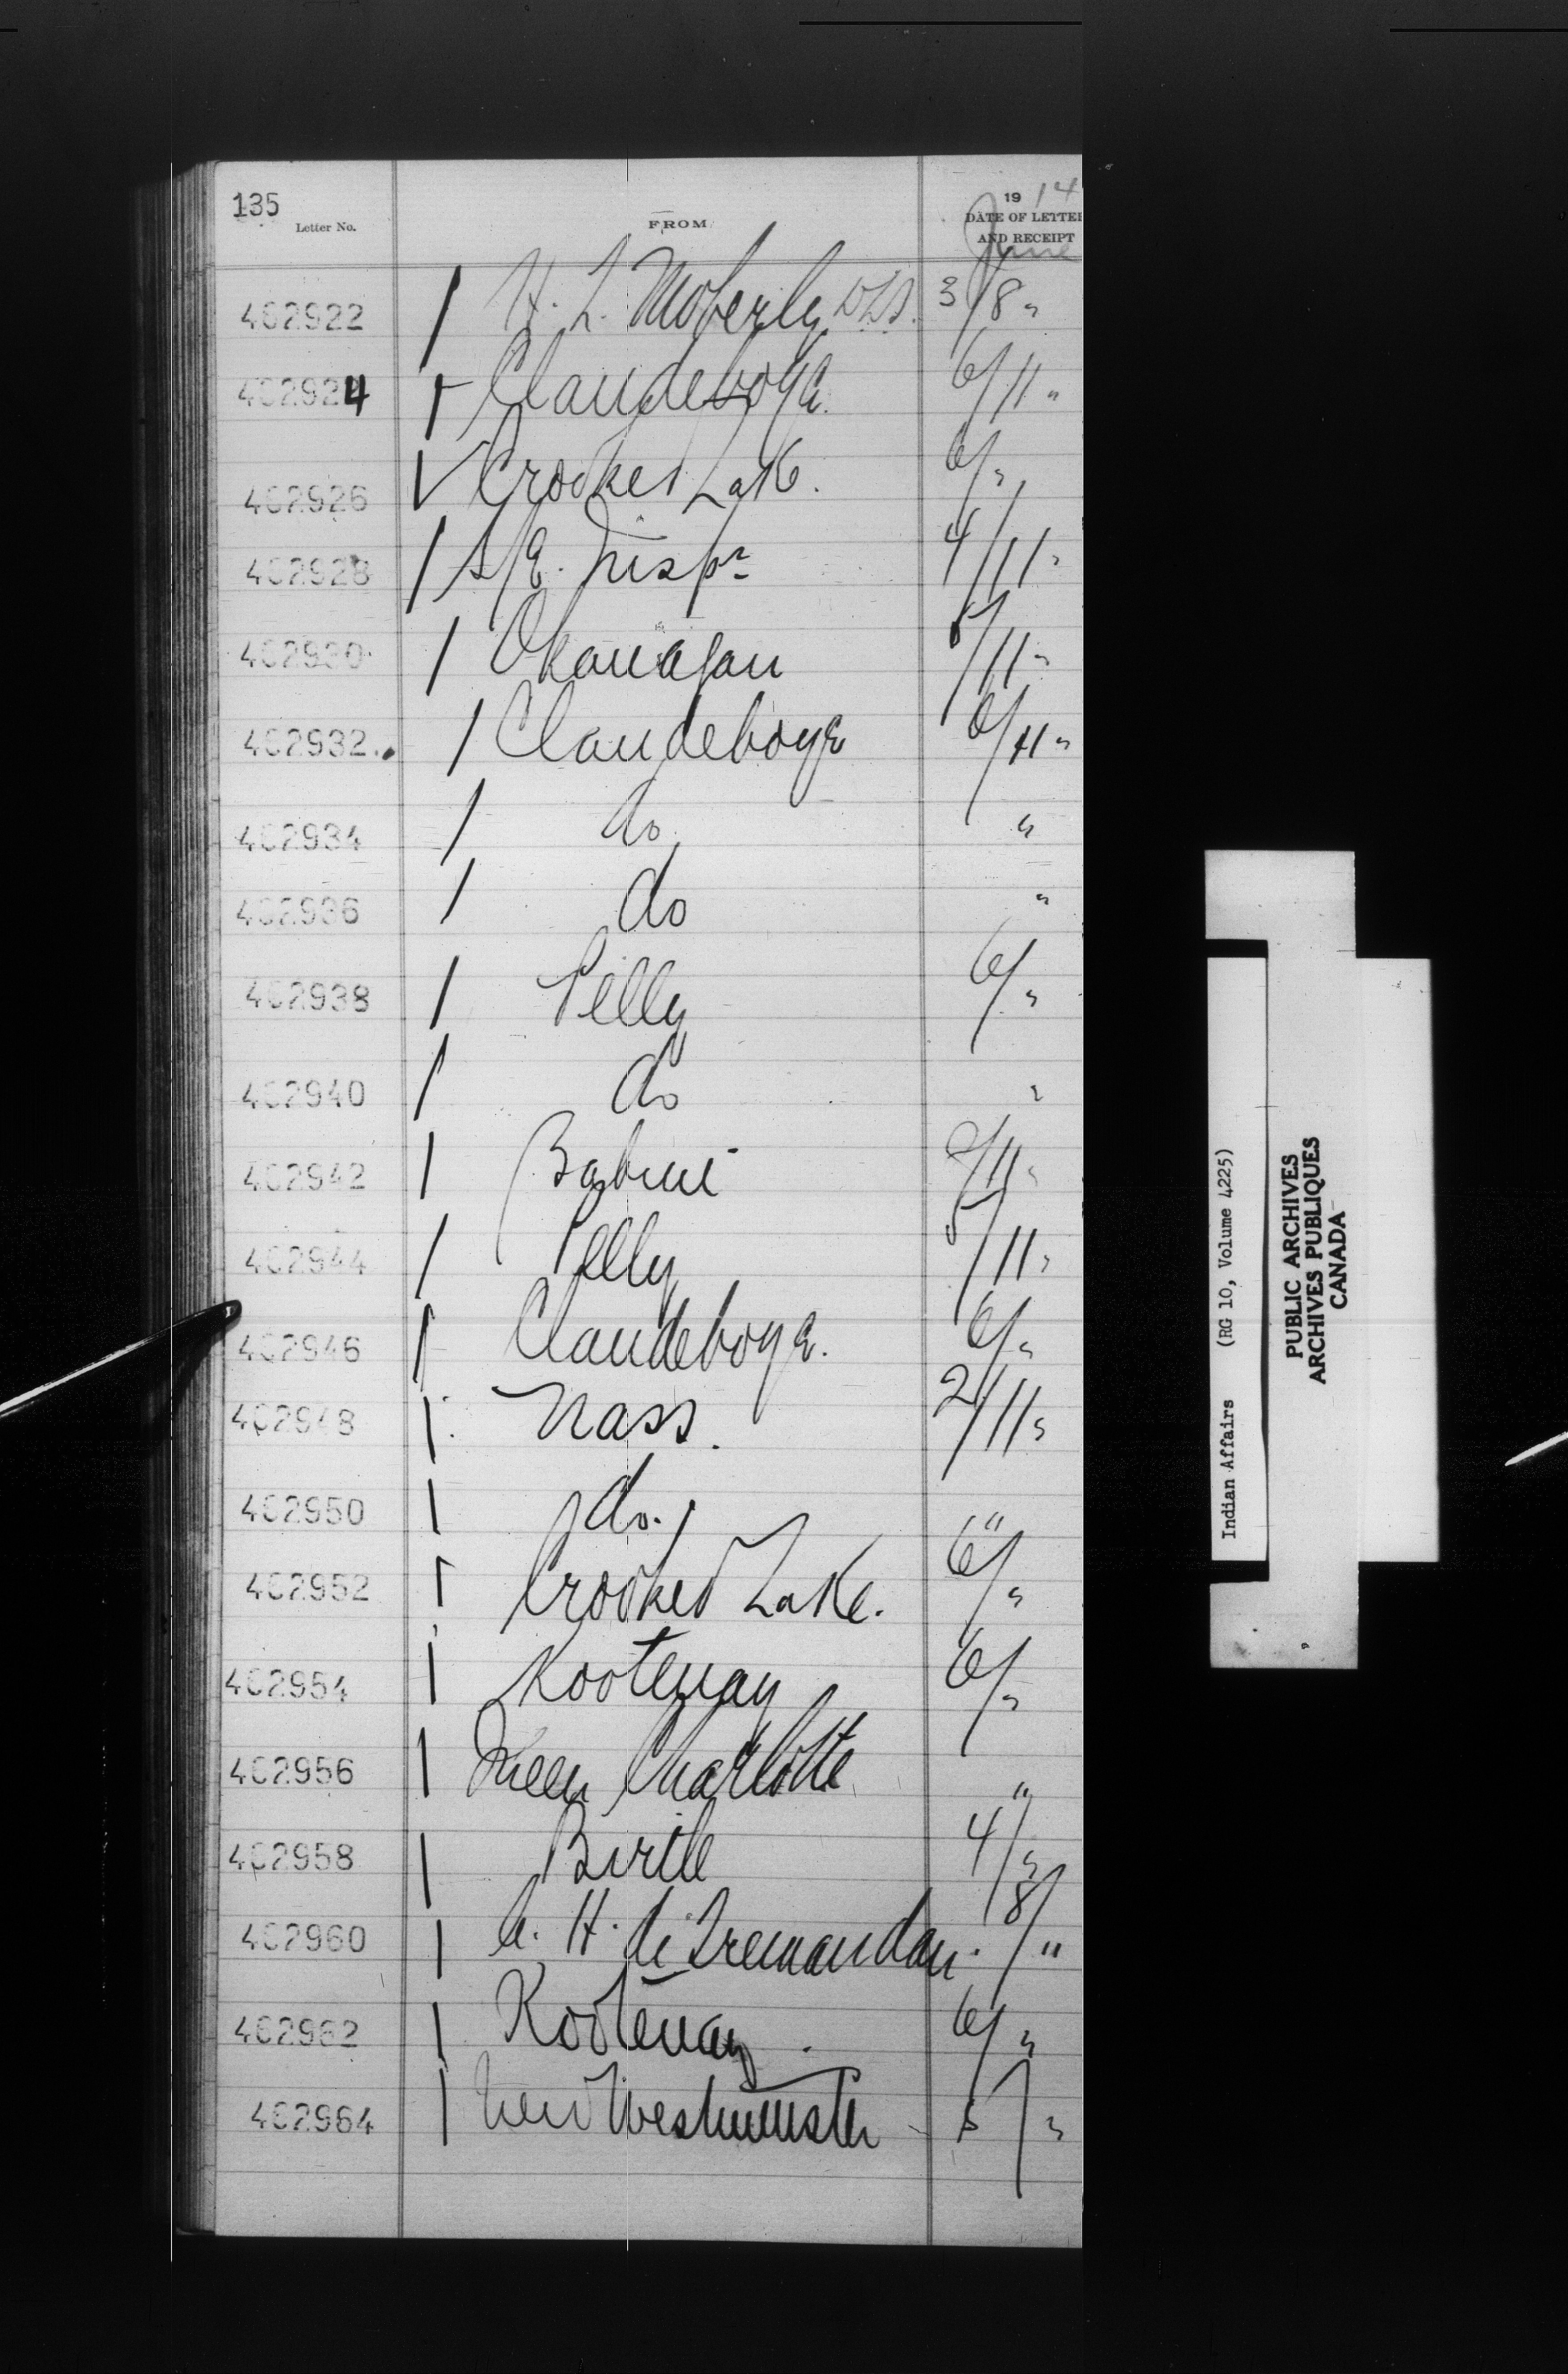 135
Letter No.
FROM
19 14
DATE OF LETTER
AND RECEIPT
June
462922 H. L. Moberly DLS. 3/8 "
462924 Clandeboye 6/11 "
462926 Crooked Lake. 6/ "
462928 S/E. Insp r 4/11 "
462930 Okanagan 5/11 "
462932. Clandeboye 6/11 "
462934 do "
462936 do "
462938 Pelly 6/ "
462940 do "
462942 Babine /11 "
462944 Pelly 5/11 "
462946 Clandeboye. 6/ "
462948 Nass. 2/11 "
462950 do. "
462952 Crooked Lake. 6/ "
462954 Kootenay 6/ "
462956 Queen Charlotte "
462958 Birtle 4/ "
462960 A. H. de Tremaudan. 8/ "
462962 Kootenay. 6/ "
462964 New Westminster 5/ "
Indian Affairs (RG 10, Volume 4225)
PUBLIC ARCHIVES
ARCHIVES PUBLIQUES
CANADA